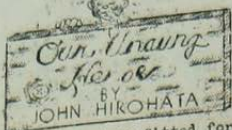 Our Unsung
Heroes
BY
JOHN HIROHATA